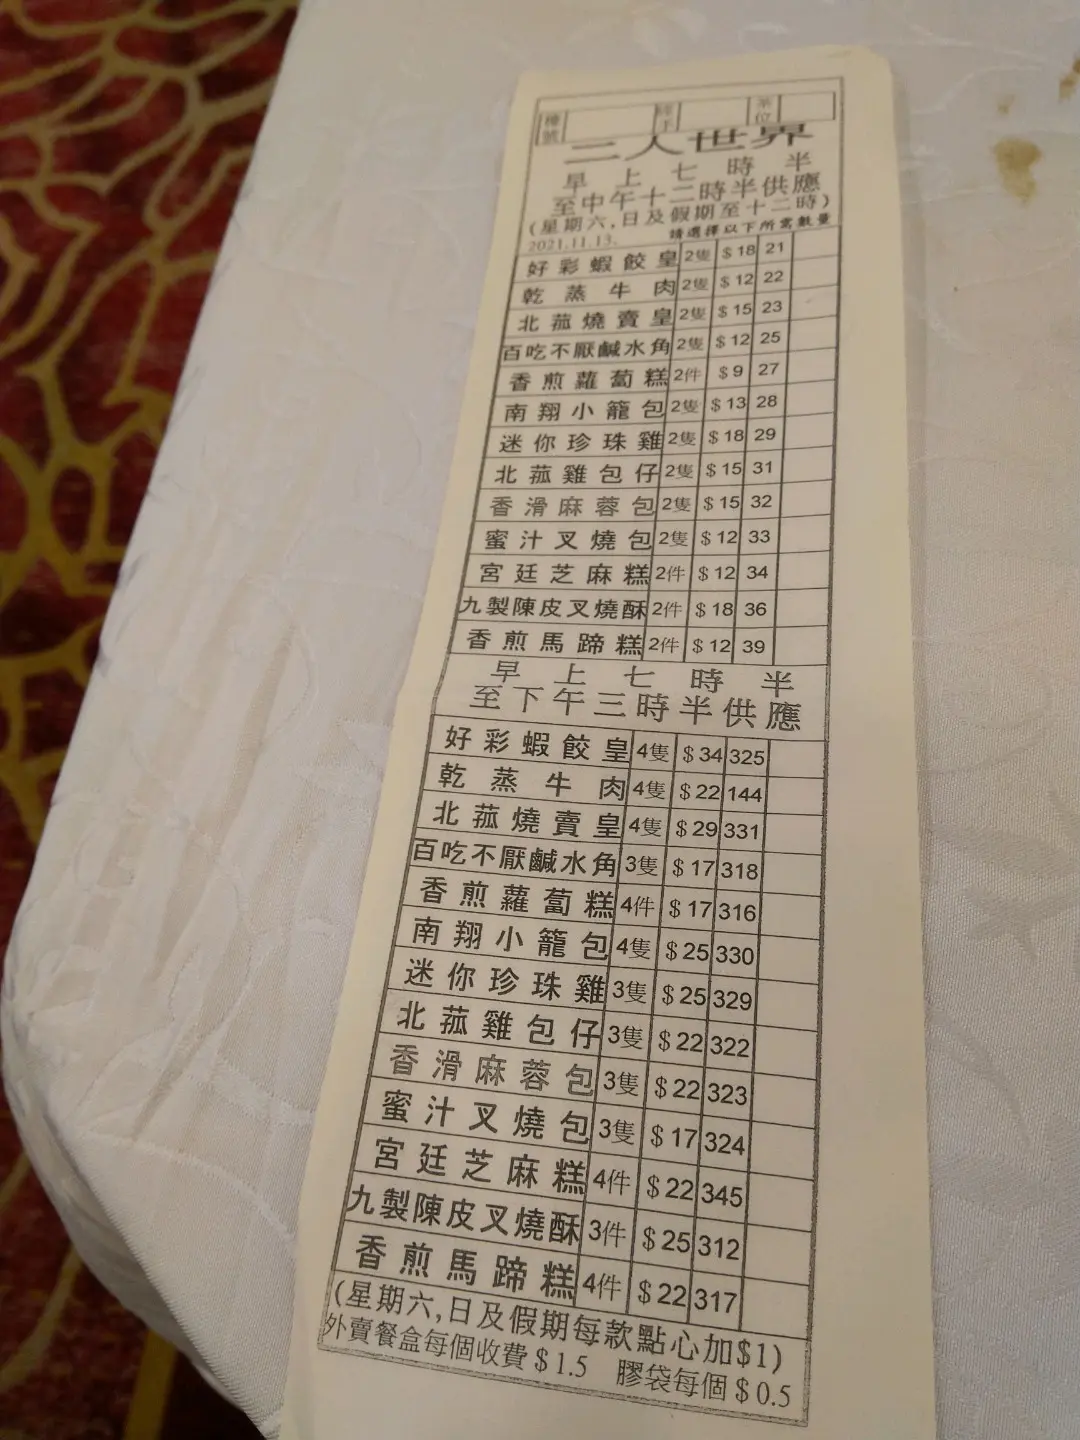 檯號 經手 茶位
二人世界
早上七時半
至中午十二時半供應
(星期六,日及假期至十二時)
2021.11.13. 請選擇以下所需數量
好彩蝦餃皇 2隻 $18 21
乾蒸牛肉 2隻 $12 22
北菰燒賣皇 2隻 $15 23
百吃不厭鹹水角 2隻 $12 25
香煎蘿蔔糕 2件 $9 27
南翔小籠包 2隻 $13 28
迷你珍珠雞 2隻 $18 29
北菰雞包仔 2隻 $15 31
香滑麻蓉包 2隻 $15 32
蜜汁叉燒包 2隻 $12 33
宮廷芝麻糕 2件 $12 34
九製陳皮叉燒酥 2件 $18 36
香煎馬蹄糕 2件 $12 39
早上七時半
至下午三時半供應
好彩蝦餃皇 4隻 $34 325
乾蒸牛肉 4隻 $22 144
北菰燒賣皇 4隻 $29 331
百吃不厭鹹水角 3隻 $17 318
香煎蘿蔔糕 4件 $17 316
南翔小籠包 4隻 $25 330
迷你珍珠雞 3隻 $25 329
北菰雞包仔 3隻 $22 322
香滑麻蓉包 3隻 $22 323
蜜汁叉燒包 3隻 $17 324
宮廷芝麻糕 4件 $22 345
九製陳皮叉燒酥 3件 $25 312
香煎馬蹄糕 4件 $22 317
(星期六,日及假期每款點心加$1)
外賣餐盒每個收費$1.5 膠袋每個$0.5